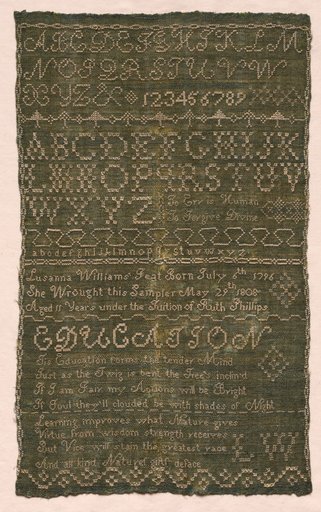 ABCDEFGHIKLM
NOPQRSTUVW
XYZ& 123456789
ABCDEFGHIJK
LMNOPQRSTUV
WXYZ
To Err is Human
To Forgive Divine
abcdefghijklmnopqrstuvwxyz
Lusanna Williams Born July 6th 1796
She Wrought this Sampler May 28th 1808
Aged 11 Years under the Tuition of Ruth Phillips
EDUCATION
Tis Education forms the tender Mind
Just as the Twig is bent the Tree's inclin'd
If I am Fair my Actions will be Bright
If Foul they'll clouded be with shades of Night
Learning improves what Nature gives
Virtue from wisdom strength receives
But Vice will stain the greatest race
And all kind Nature's gifts deface
LW